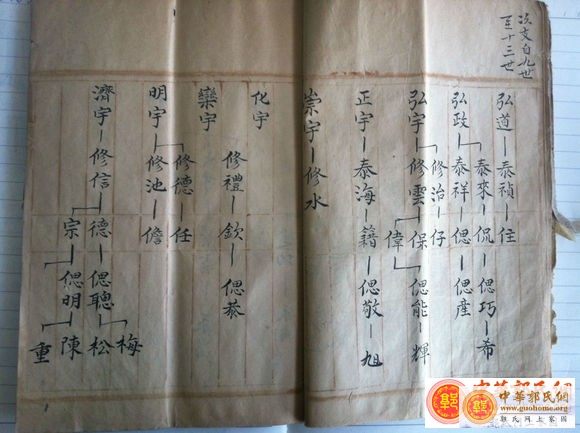 次文自九世
至十三世
弘道 泰禎 住
泰來 侃 偲巧 希
弘政 泰祥 偲 偲產
修治 仔
弘宇 修雲 保 偲能 輝
偉
正宇 泰海 籍 偲敬 旭
崇宇 修水
化宇
修禮 欽 偲恭
欒宇
修德 任
明宇 修池 儋
濟宇 修信 德 偲聰 松 梅
宗 偲明 陳
重
中華郭氏網
www.guohome.org
郭氏網上家園